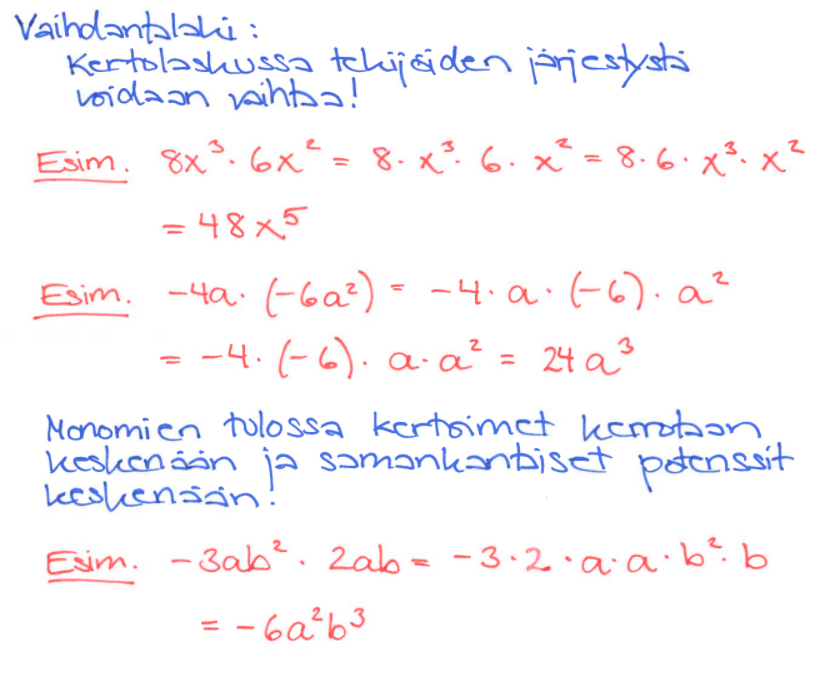 Vaihdantalaki :
Kertolaskussa tekijöiden järjestystä
voidaan vaihtaa!
Esim. 8x³ · 6x² = 8 · x³ · 6 · x² = 8 · 6 · x³ · x²
= 48x⁵
Esim. -4a · (-6a²) = -4 · a · (-6) · a²
= -4 · (-6) · a · a² = 24a³
Monomien tulossa kertoimet kerrotaan
keskenään ja samankantaiset potenssit
keskenään!
Esim. -3ab² · 2ab = -3 · 2 · a · a · b² · b
= -6a²b³